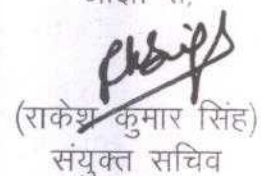 (राकेश कुमार सिंह)
संयुक्त सचिव